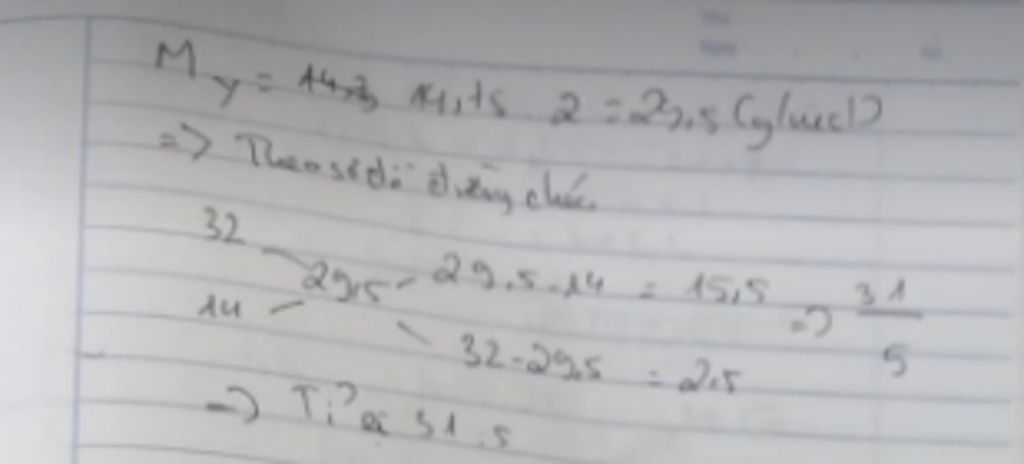 M_Y = 14,75 . 2 = 29,5 (g/mol)
=> Theo sơ đồ đường chéo
32 29,5 - 14 = 15,5
29,5 => 31/5
14 32 - 29,5 = 2,5
=> Tỉ lệ 31:5